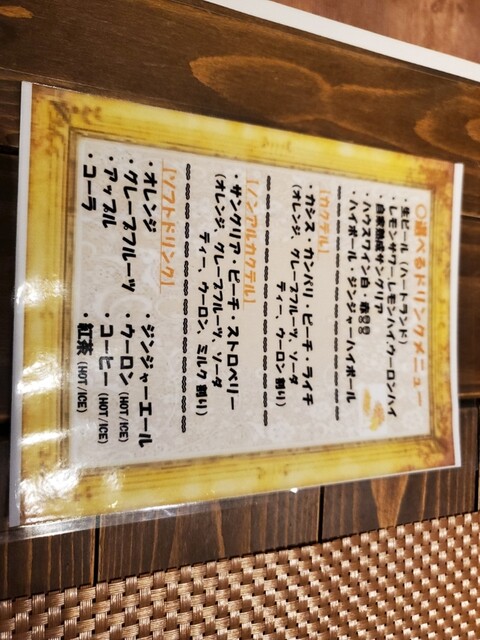 ○選べるドリンクメニュー
・生ビール（ハートランド）
・レモンサワー・レモンハイ・ウーロンハイ
・自家熟成サングリア
・ハウスワイン白・赤
・ハイボール・ジンジャーハイボール
[カクテル]
・カシス・カンパリ・ピーチ・ライチ
(オレンジ、グレープフルーツ、ソーダ
ティー、ウーロン割り)
[ノンアルカクテル]
・サングリア・ピーチ・ストロベリー
(オレンジ、グレープフルーツ、ソーダ
ティー、ウーロン、ミルク割り)
[ソフトドリンク]
・オレンジ ・ジンジャーエール
・グレープフルーツ ・ウーロン (HOT/ICE)
・アップル ・コーヒー (HOT/ICE)
・コーラ ・紅茶 (HOT/ICE)